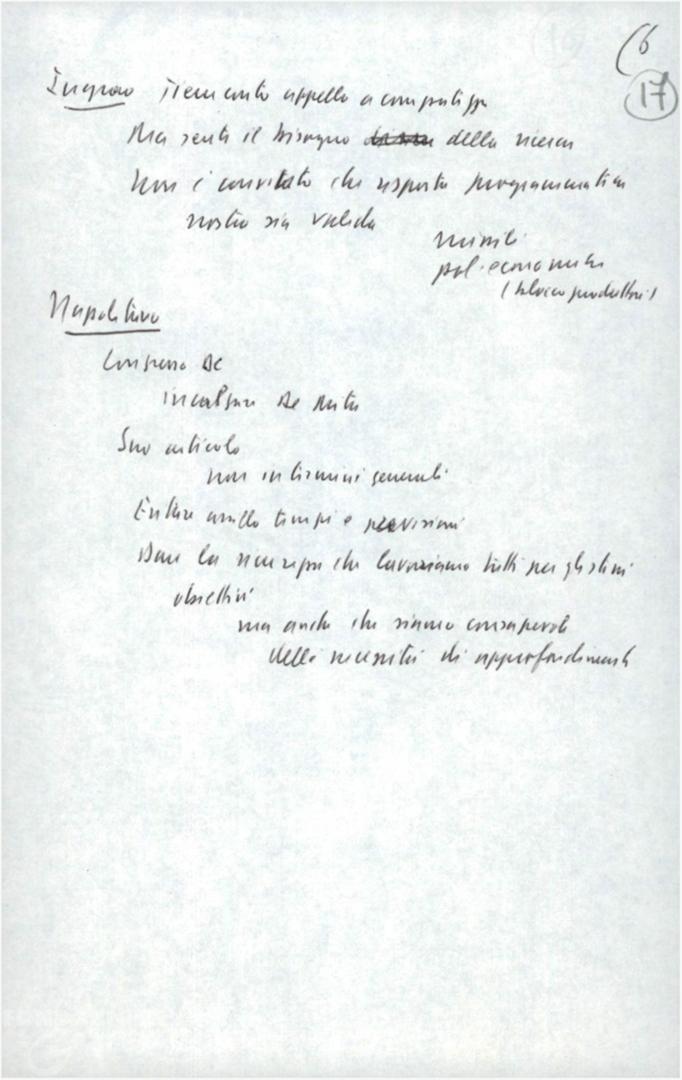 (6
17
Ingrao siamo appello a compattezza
Ma senta il bisogno della ricerca
Non è convinto che risposta programmatica
nostra sia valida
missili
pol. economica
(blocco produttori)
Napolitano
Congresso DC
incalzare De Mita
Suo articolo
non in termini generali
Entrare anello tempi e previsioni
Dare la sicurezza che lavoriamo tutti per gli stessi
obiettivi
ma anche che siamo consapevoli
della necessità di approfondimenti